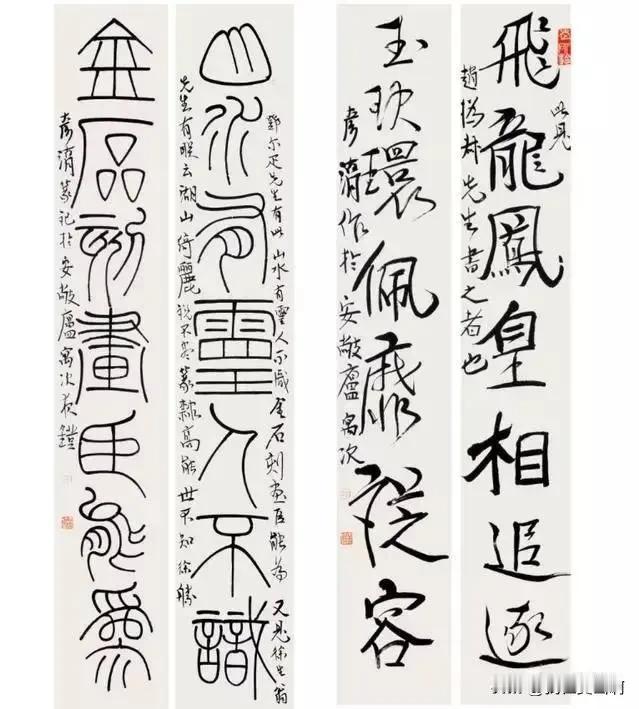 飛龍鳳皇相追逐
此見
趙撝叔先生書之者也
玉玦環佩靡從容
作於安敬廬寓次
山水有靈人不識
鄧尔疋先生有此山水有靈人不識金石刻畫臣能為又見徐生翁
先生有联云湖山綺麗說不盡篆隸高能世不知徐勝
金石刻畫臣能為
篆記於安敬廬寓次